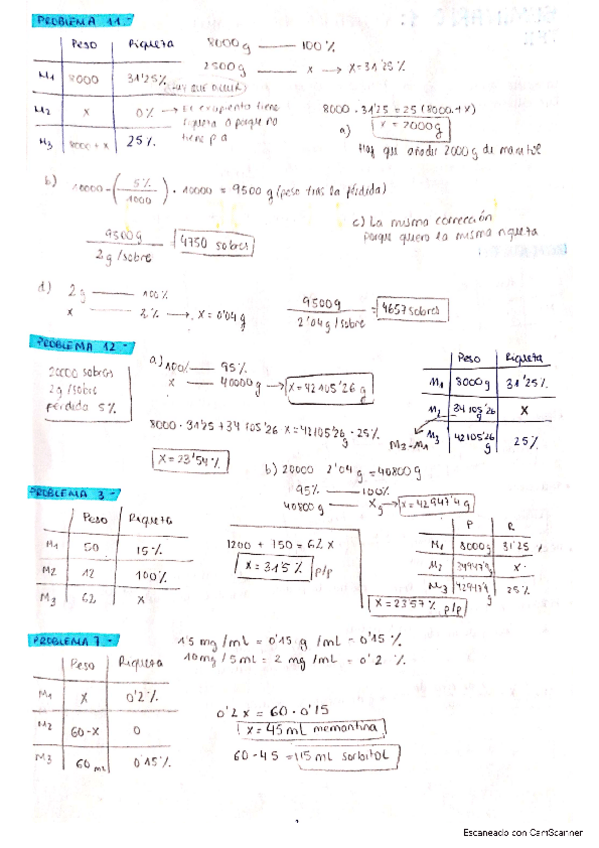 PROBLEMA 11.-
Peso Riqueza
M1 8000 31'25%
M2 x 0% → El excipiente tiene riqueza 0 porque no tiene p.a
M3 8000 + x 25%
8000g —— 100%
2500g —— x → x=31'25%
(HAY QUE
8000 · 31'25 = 25 (8000 + x)
a) x = 2000g
Hay que añadir 2000g de manitol
b) 10000 - (5% / 1000) · 10000 = 9500 g (peso tras la pérdida)
9500g / 2g/sobre = 4750 sobres
c) La misma corrección
porque quiero la misma riqueza
d) 2g —— 100%
x —— 2% → x = 0'04g
9500g / 2'04g/sobre = 4657 sobres
PROBLEMA 12.-
20000 sobres
2g/sobre
pérdida 5%
a) 100% —— 95%
x —— 40000g → x = 42105'26 g
8000 · 31'25 + 34105'26 x = 42105'26 g · 25%
x = 23'54%
Peso Riqueza
M1 8000g 31'25%
M2 34105'26 g x
M3 42105'26 g 25%
M3-M1
b) 20000 2'04g = 40800g
95% —— 100%
40800g —— xg → x = 42947'4 g
P R
M1 8000g 31'25%
M2 34947'4g x
M3 42947'4 g 25%
x = 23'57% p/p
PROBLEMA 3.-
Peso Riqueza
M1 50 15%
M2 12 100%
M3 62 x
1200 + 150 = 62 x
x = 31'5% p/p
PROBLEMA 7.-
1'5 mg/mL = 0'15 g /mL = 0'15%
10mg/5mL = 2 mg/mL = 0'2 %
Peso Riqueza
M1 x 0'2%
M2 60-x 0
M3 60 mL 0'15%
0'2 x = 60 · 0'15
x = 45 mL memantina
60 - 45 = 15 mL sorbitol
Escaneado con CamScanner